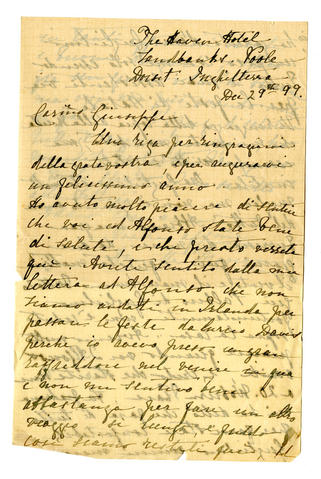 The Haven Hotel
Sandbanks. Poole
Dorset. Inghilterra
Dec 29th 99.
Cariss Giuseppe
Una riga per ringraziarvi
della grata vostra, e per augurarvi
un felicissimo anno
Ho avuto molto piacere di sentire
che voi ed Alfonso state bene
di salute, e che presto verrete
qui. Avrete sentito dalla mia
lettera ad Alfonso che non
siamo andati in Irlanda per
passare le feste da Davis
perchè io avevo preso un gran
raffreddore nel venire in qua
e non mi sentivo bene
abbastanza per fare un altro
viaggio si lungo, e freddo
così siamo restati qui